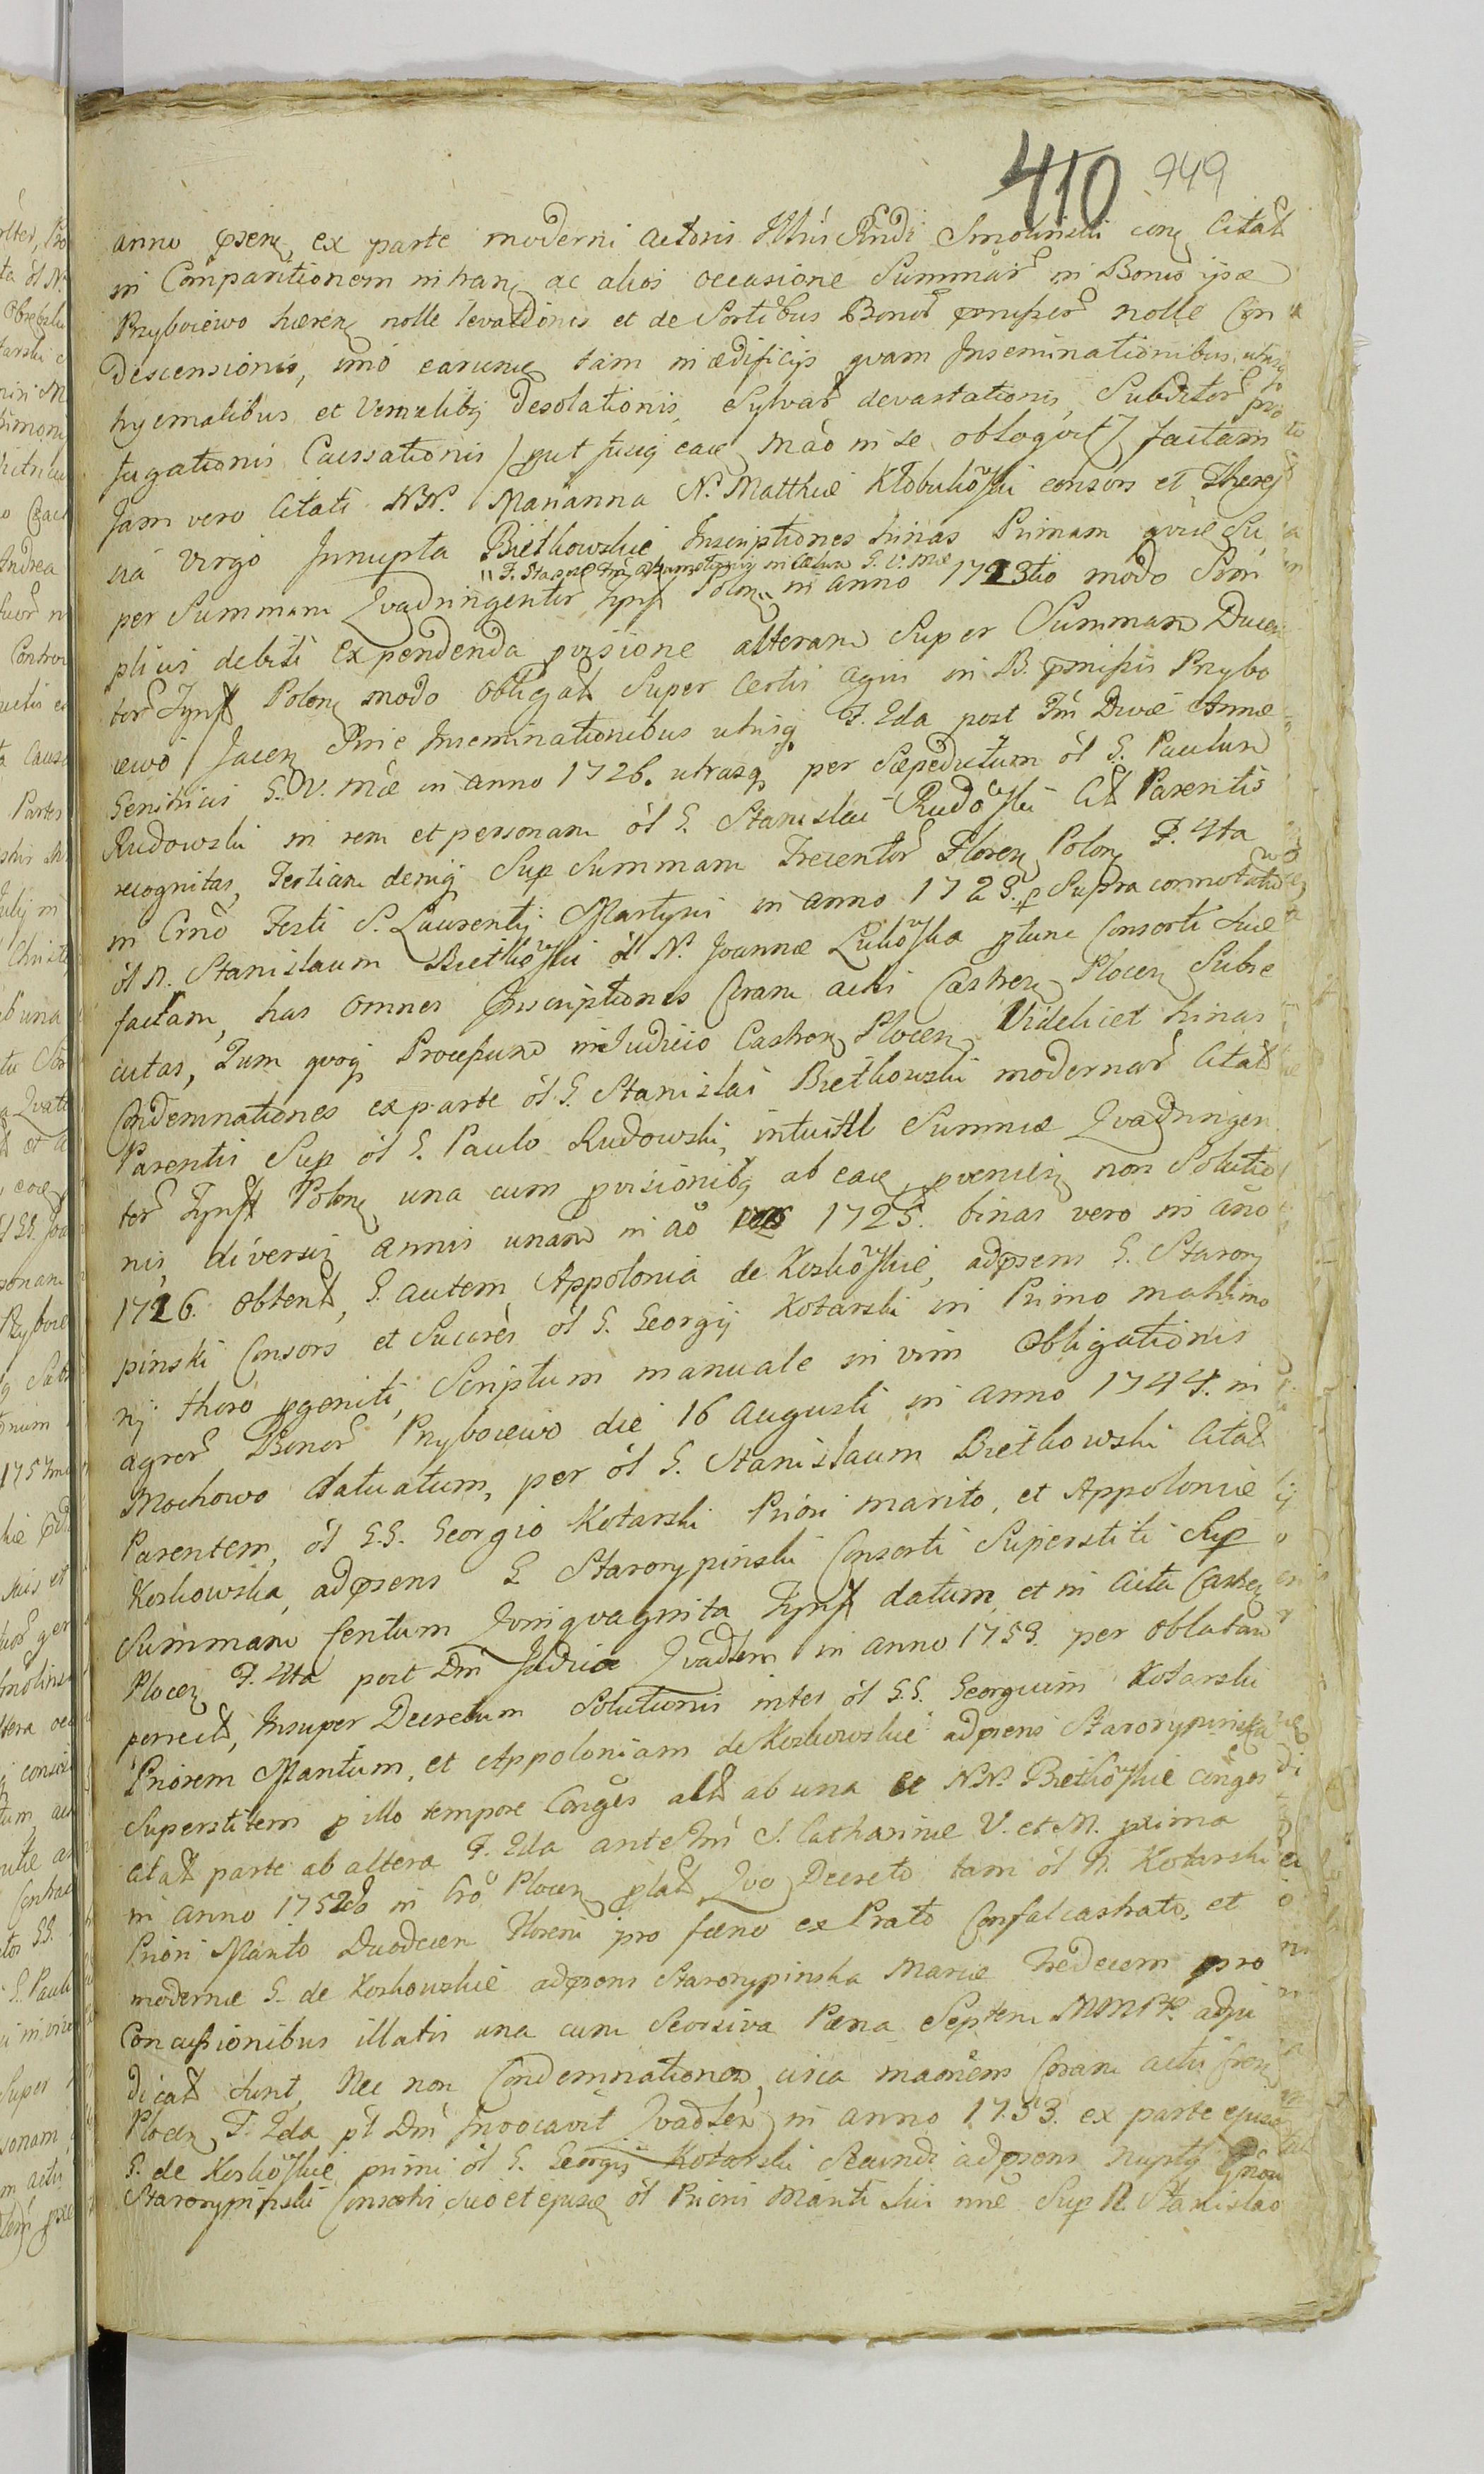 410 949
anno psenẽ ex parte moderni actoris Illris Rndi Smolinski conẽ Citat
in Comparitionem in hanẽ ac alios occasione Summar in Bonis ipsæ
Przyborewo hærenẽ nolle levationis et de Sortibus Bonor pmissor nolle Con
descensionis, imo earunẽ tam in ædificijs quam Inseminationibus utrisq
hyemalibus et Vernalibq desolationis, Sylvar devastationis, Subditor pro
fugationis Caussationis / put fusiq eaẽ mão in se obloqvit / factam
Jam vero Citati NN. Marianna N. Matthiæ Kłobukowski consors et There
sia Virgo Innupta Bietkowskie, Inscriptiones binas Primam qvie Su
per Summam Qvadringentor Tynff Polon in anno 1723tio modo Sim
plicis debiti expendenda pvisione alteram Super Summam Ducen
tor Tynff Polonẽ modo Obligat Super certis agris in B. pmissis Przybo
rewo Jacenẽ sine Inseminationibus utrisq F. 2da post Fm Divæ Annæ
Genitricis G. V. Mæ in anno 1726. utrasq per Sæpedictum ól G. Paulum
Rudowski in rem et personam ól G. Stanislai Rudowski Cit Parentis
recognitas, Tertiam deniq Sup Summam Trecentor Florenẽ Polonẽ F. 4ta
in Crno Festi S. Laurentij Martyris in anno 1723. p Supra connotatum
ól N. Stanislaum Bietkowski ól N. Joannæ Lukowska ptunc Consorti suæ
factam, has omnes Inscriptiones Coram actis Castrenẽ Plocenẽ Subse
cutas, Tum qvoq Processum in Judicio Castrenẽ Plocenẽ Videlicet binas
Condemnationes ex parte ól G. Stanislai Bietkowski modernar Citat
Parentis Sup ól G. Paulo Rudowski, intuitu Summæ Qvadringen
tor Tynff Polonẽ una cum pvisionibq ab eaẽ pvenienẽ non Solutio
nis, diversis annis unam in ao 1725. binas vero in año
1726. obtent, G. autem Appolonia de Koskowskie, adpsens G. Starory
pinski Consors et Succrẽs ól G. Georgij Kotarski in Primo matrimo
nij thoro pgeniti, Scriptum manuale in vim Obligationis
agror Bonor Przyborewo die 16 Augusti in anno 1744. in
Mochowo datuatum, per ól G. Stanislaum Bietkowski Citat
Parentem, ól GG. Georgio Kotarski Priori marito, et Appoloniæ
Koskowska, adpsens G Starorypinski Consorti Superstiti Sup
Summam Centum Qvinqvaginta Tynff datum, et in Actis Castrenẽ
Plocenẽ F. 4ta post Dm Judica Qvadlem in anno 1753. per oblatam
porrect, Insuper Decretum Solutionis inter ól GG. Georgium Kotarski
Priorem Maritum, et Appoloniam de Koskowskie adpsens Starorypinska
Superstitem p illo tempore Conges act ab una et NN. Bietkowskie conges
citat parte ab altera F. 2da ante Fm S. Catharinæ V. et M. prima
in anno 1752do in Cro Plocenẽ plat Qvo Decreto tam ól N. Kotarski
Priori Marito Duodecem Floreni pro fæno ex Prato Confalcastrato, et
modernæ G. de Koskowskie adpsens Starorypinska Marcæ Tredecem pro
Concussionibus illatis una cum Seorsiva Pæna Septem MMPP. adju
dicat sunt, Nec non Condemnationem, circa manens Coram actis Cren
Plocenẽ F. 2da pt Dm Invocavit Qvadlem in anno 1753. ex parte ejusẽ
G. de Koskowskie primi ól G. Georgij Kotarski Secundi adpsens nuptij Gnosi
Starorypinski Consorti suo et ejusẽ ól Prioris Mariti sui nne Sup N. Stanislao